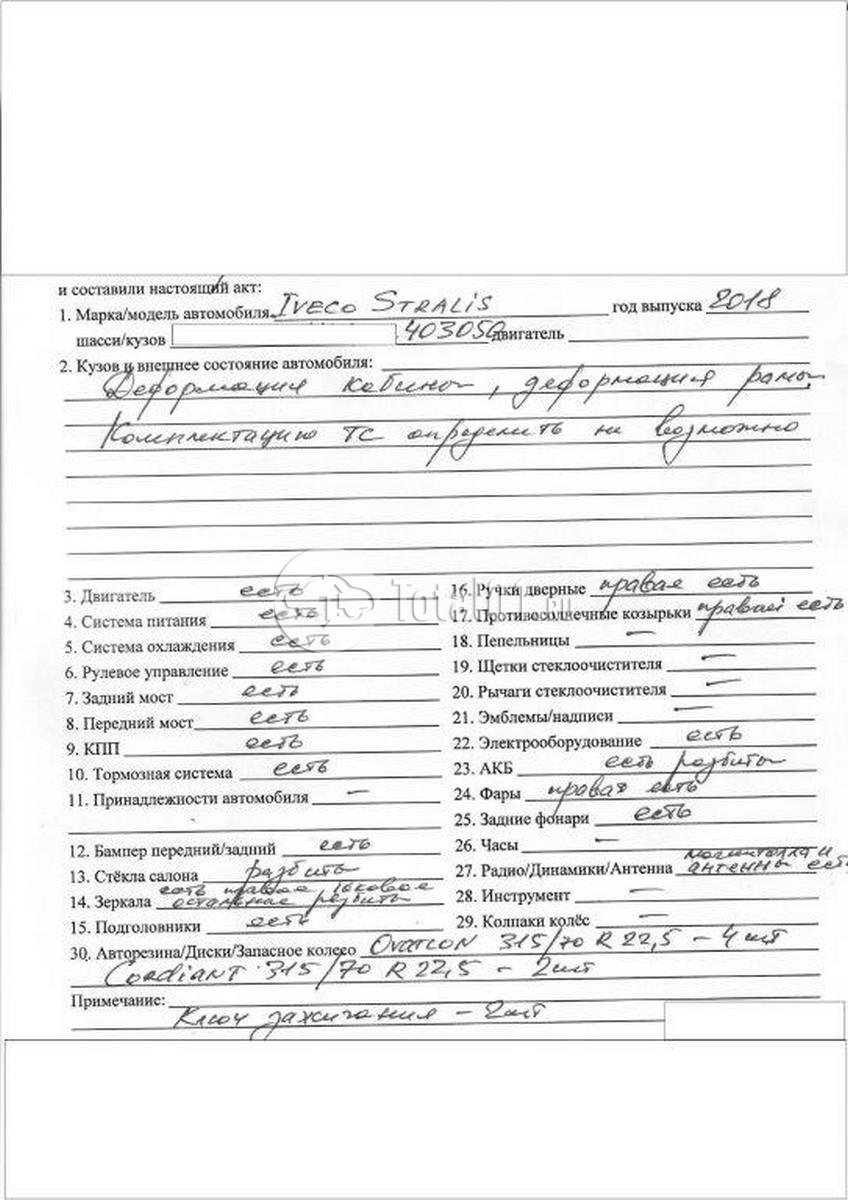 и составили настоящий акт:
1. Марка/модель автомобиля IVECO STRALIS год выпуска 2018
шасси/кузов 403050 двигатель
2. Кузов и внешнее состояние автомобиля:
Деформация кабины, деформация рамы.
Комплектацию ТС определить не возможно
3. Двигатель есть
4. Система питания есть
5. Система охлаждения есть
6. Рулевое управление есть
7. Задний мост есть
8. Передний мост есть
9. КПП есть
10. Тормозная система есть
11. Принадлежности автомобиля –
12. Бампер передний/задний есть
13. Стёкла салона разбиты
есть правое, боковое
14. Зеркала остальные разбиты
15. Подголовники есть
16. Ручки дверные правая есть
17. Противосолнечные козырьки правый есть
18. Пепельницы –
19. Щетки стеклоочистителя –
20. Рычаги стеклоочистителя –
21. Эмблемы/надписи –
22. Электрооборудование есть
23. АКБ есть разбиты
24. Фары правая есть
25. Задние фонари есть
26. Часы –
магнитолла и
27. Радио/Динамики/Антенна антенны есть
28. Инструмент –
29. Колпаки колёс –
30. Авторезина/Диски/Запасное колесо OVATION 315/70 R 22,5 – 4 шт
CORDIANT 315/70 R 22,5 – 2шт
Примечание:
Ключ зажигания – 2шт
Total01.ru